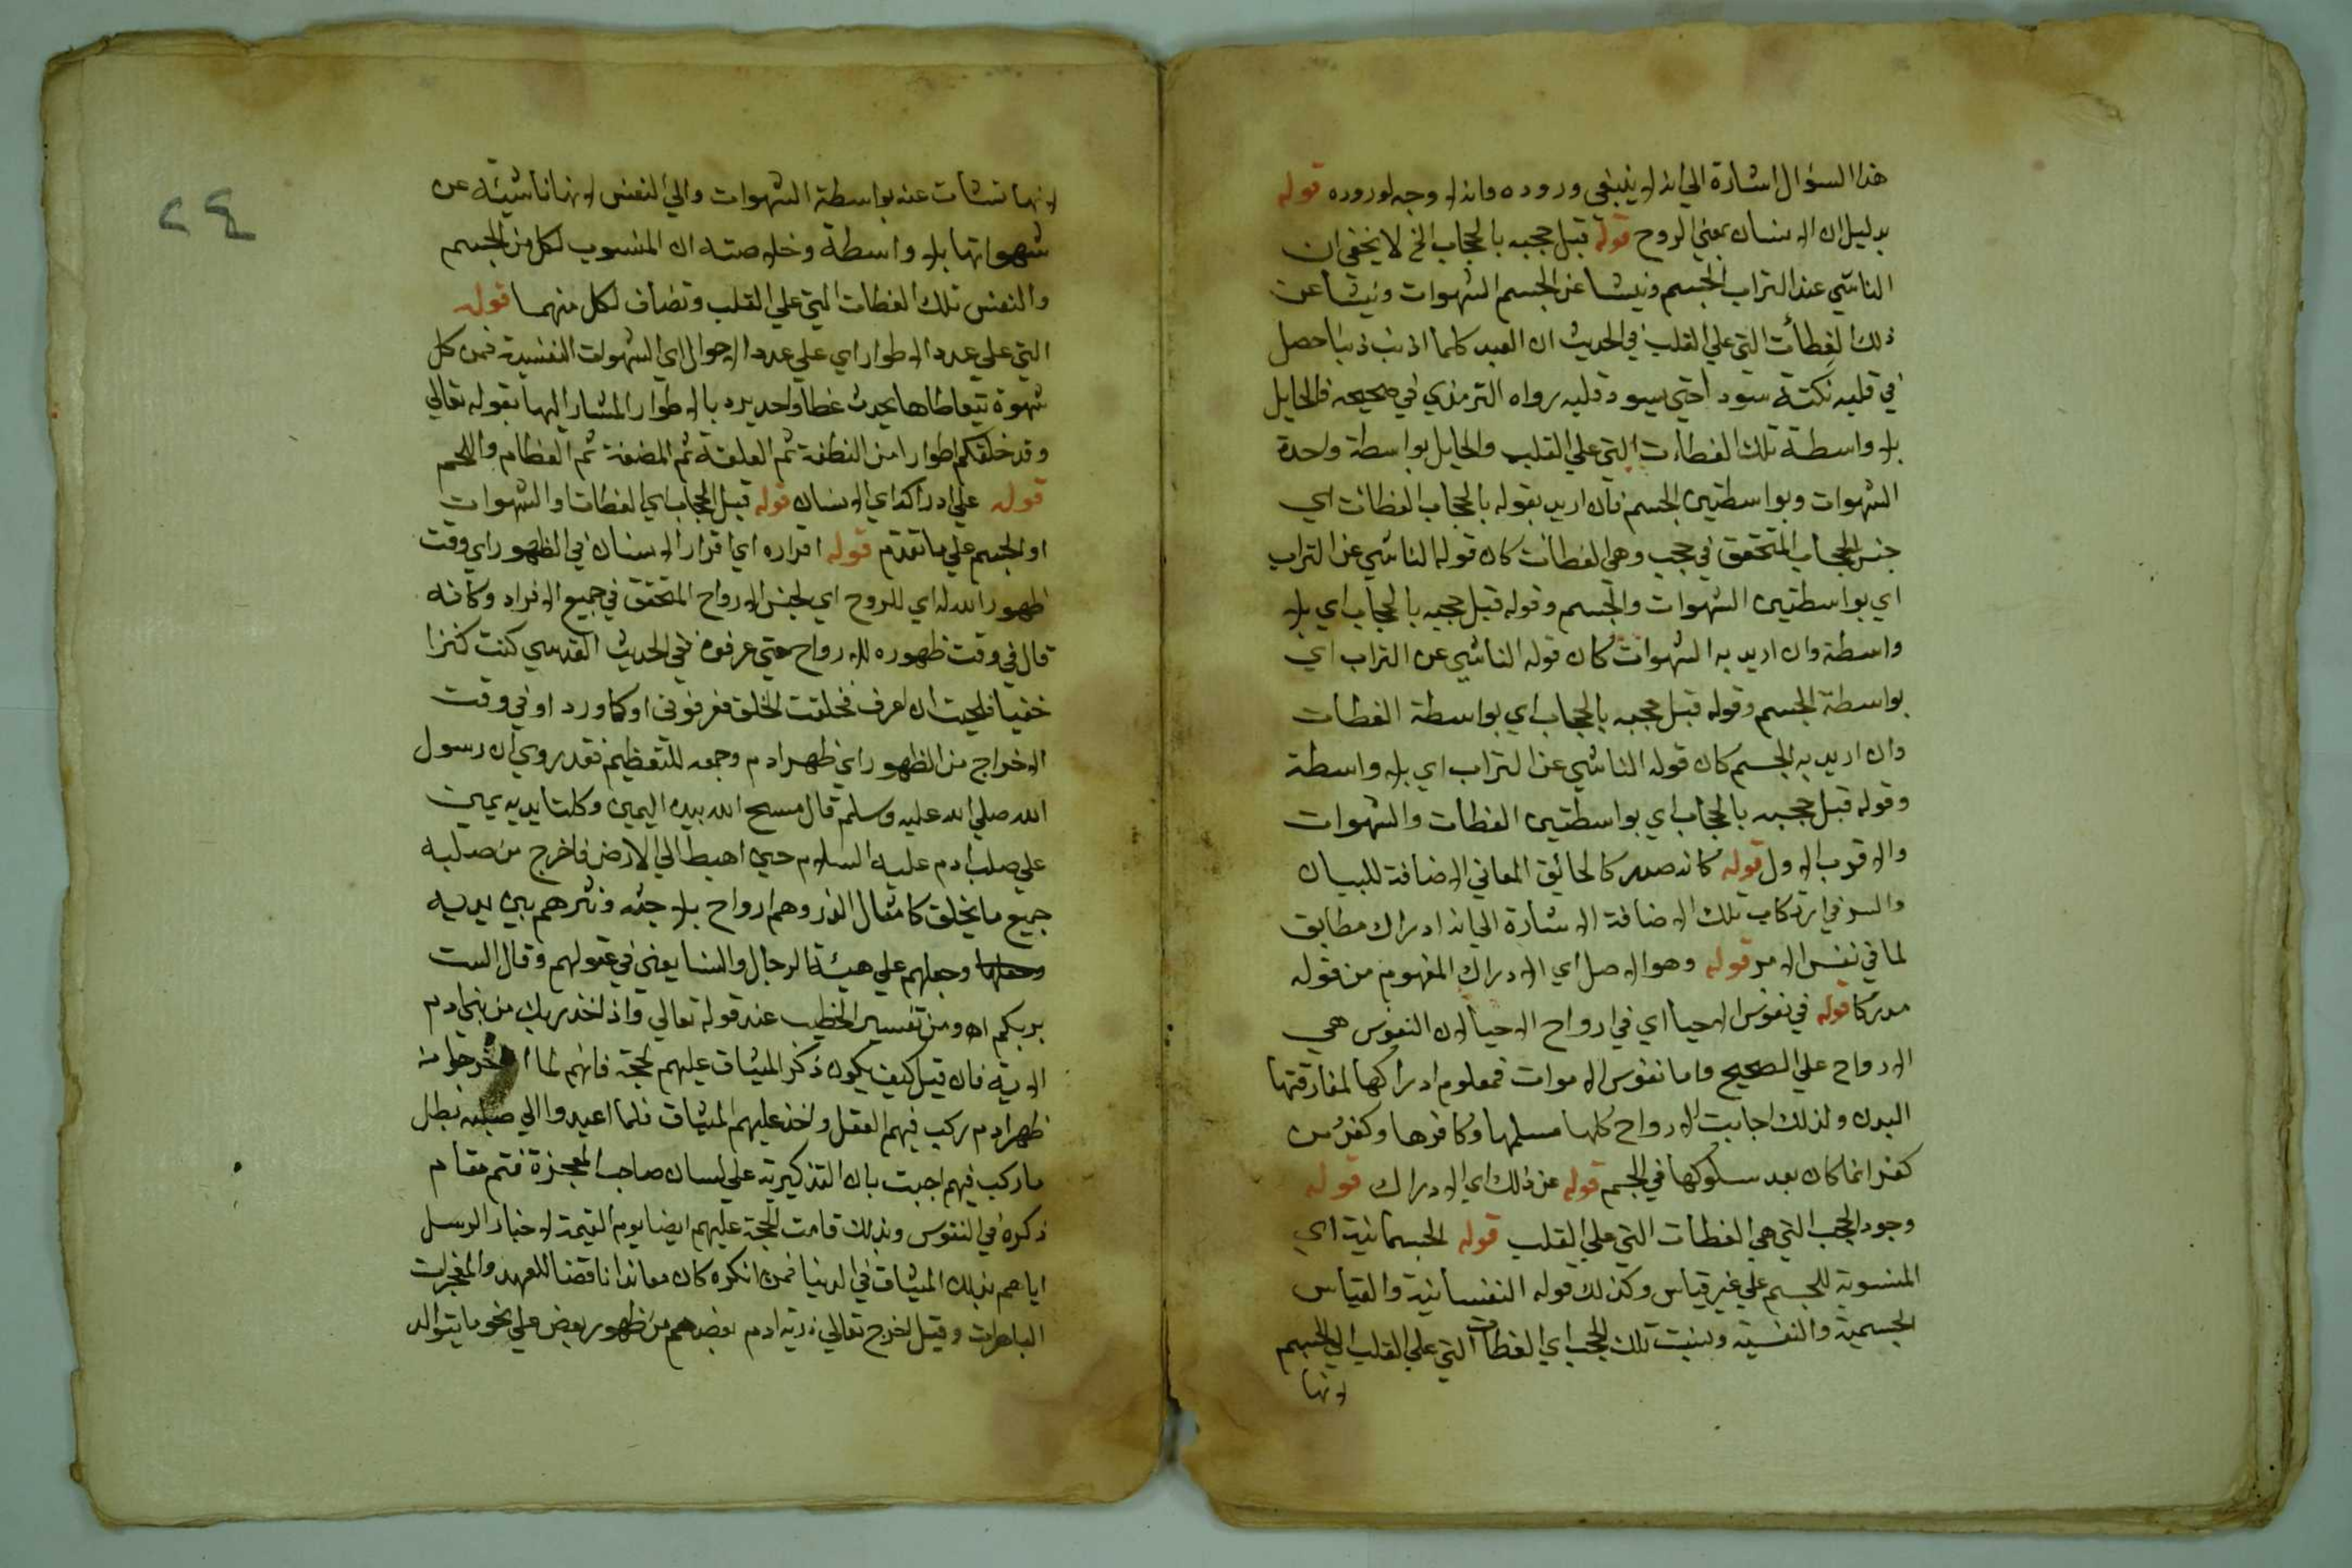 هذا السؤال اشارة الي انه لا ينبغي وروده وانه لا وجه لوروده قوله
بدليل ان الانسان بمعني الروح قوله قبل حجبه بالحجاب الخ لا يخفي ان
الناشي عند التراب الجسم وينشا عن الجسم الشهوات وينشا عن
ذلك الغطات التي علي القلب في الحديث ان العبد كلما اذنب ذنبا حصل
في قلبه نكتة سودا حتي يسود قلبه رواه الترمذي في صحيحه فالحايل
بلا واسطة تلك الغطات التي علي القلب والحايل بواسطة واحدة
الشهوات وبواسطتين الجسم فان اريد بقوله بالحجاب الغطات اي
جنس الحجاب المتحقق في حجب وهي الغطات كان قوله الناشي عن التراب
اي بواسطتين الشهوات والجسم وقوله قبل حجبه بالحجاب اي بلا
واسطة وان اريد به الشهوات كان قوله الناشي عن التراب اي
بواسطة الجسم وقوله قبل حجبه بالحجاب اي بواسطة الغطات
وان اريد به الجسم كان قوله الناشي عن التراب اي بلا واسطة
وقوله قبل حجبه بالحجاب اي بواسطتين الغطات والشهوات
والاقرب الاول قوله كانه صدر كالحائق المعاني الاضافة للبيان
والسر في ارتكاب تلك الاضافة الاشارة الي انه ادراك مطابق
لما في نفس الامر قوله وهو الاصل اي الادراك المفهوم من قوله
مدركا قوله في نفوس الاحيا اي في ارواح الاحيا لان النفوس هي
الارواح علي الصحيح واما نفوس الاموات فمعلوم ادراكها لمفارقتها
البدن ولذلك اجابت الارواح كلها مسلمها وكافرها وكفر من
كفر انما كان بعد سلوكها في الجسم قوله عن ذلك اي الادراك قوله
وجود الحجب التي هي الغطات التي علي القلب قوله الجسمانية اي
المنسوبة للجسم علي غير قياس وكذلك قوله النفسانية والقياس
الجسمية والنفسية ونسبت تلك الحجب اي الغطات التي علي القلب الي الجسم
لانها
٢٤
لانها نشات عنه بواسطة الشهوات والي النفس لانها ناشية عن
شهواتها بلا واسطة وخلاصته ان المنسوب لكل من الجسم
والنفس تلك الغطات التي علي القلب وتضاف لكل منهما قوله
التي علي عدد الاطوار اي علي عدد الاحوال اي الشهوات النفسية فمن كل
شهوة تتعاطاها يحدث غطا واحد يريد بالاطوار المشار اليها بقوله تعالي
وقد خلقكم اطوارا من النطفة ثم العلقة ثم المضغة ثم العظام واللحم
قوله علي ادراكه اي الانسان قوله قبل الحجاب اي الغطات او الشهوات
او الجسم علي ما تقدم قوله اقراره اي اقرار الانسان في الظهور اي وقت
ظهور الله له اي للروح اي لجنس الارواح المتحقق في جميع الافراد وكانه
قال في وقت ظهوره للارواح حتي عرفوه ففي الحديث القدسي كنت كنزا
خفيا فاحبت ان اعرف فخلقت الخلق فعرفوني او كما ورد او في وقت
الاخراج من الظهور اي ظهر ادم وجمعه للتعظيم فقد روي ان رسول
الله صلي الله عليه وسلم قال مسح الله بيده اليمين وكلتا يديه يمين
علي صلب ادم عليه السلام حين اهبط الي الارض فاخرج من صلبه
جميع ما يخلق كامثال الذر وهم ارواح بلا جثه ونثرهم بين يديه
وجعلهم علي هيئة الرجال والنسا يعني في عقولهم وقال الست
بربكم اه ومن تفسير الخطيب عند قوله تعالي واذ اخذ ربك من بني ادم
الاية فان قيل كيف يكون ذكر الميثاق عليهم حجة فانهم لما اخرجوا من
ظهر ادم ركب فيهم العقل واخذ عليهم الميثاق فلما اعيدوا الي صلبه بطل
ما ركب فيهم اجيب بان التذكير به علي لسان صاحب المعجزة قائم مقام
ذكره في النفوس وبذلك قامت الحجة عليهم ايضا يوم القيمة لاخبار الرسل
اياهم بذلك الميثاق في الدنيا فمن انكره كان معاندا ناقضا للعهد والمعجزات
الباهرات وقيل اخرج تعالي ذرية ادم بعضهم من ظهور بعض علي نحو ما يتوالد